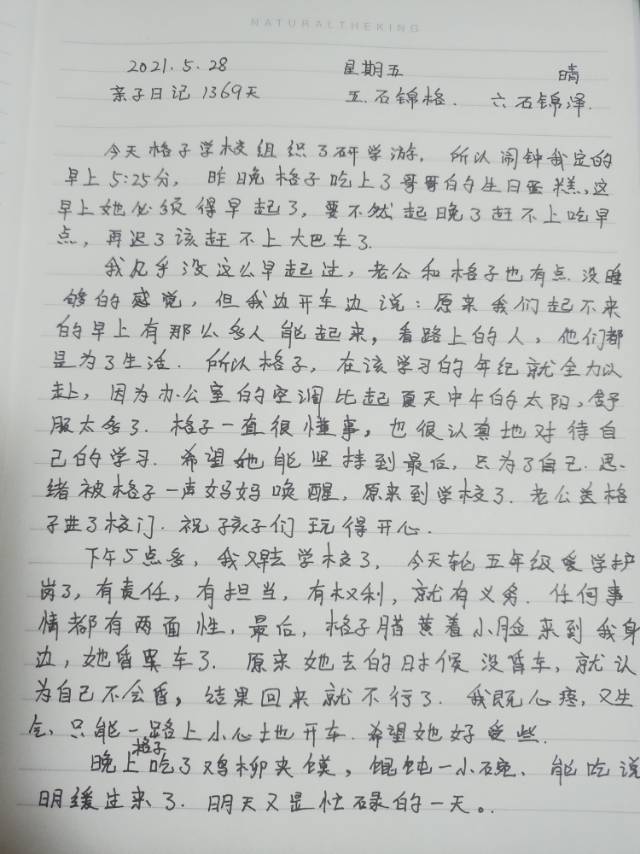 NATURALTHEKING
2021.5.28 星期五 晴
亲子日记1369天 五.石锦格. 六石锦泽.
今天格子学校组织了研学游，所以闹钟我定的
早上5:25分，昨晚格子吃上了哥哥的生日蛋糕，这
早上她必须得早起了，要不然起晚了赶不上吃早
点，再迟了该赶不上大巴车了.
我几乎没这么早起过，老公和格子也有点没睡
够的感觉，但我边开车边说：原来我们起不来
的早上有那么多人能起来，看路上的人，他们都
是为了生活.所以格子，在该学习的年纪就全力以
赴，因为办公室的空调比起夏天中午的太阳，舒
服太多了.格子一直很懂事，也很认真地对待自
己的学习.希望她能坚持到最后，只为了自己.思
绪被格子一声妈妈唤醒，原来到学校了.老公送格
子进了校门.祝孩子们玩得开心.
下午5点多，我又去学校了，今天轮五年级爱学护
岗了，有责任，有担当，有权利，就有义务.任何事
情都有两面性，最后，格子腊黄着小脸来到我身
边，她昏累车了.原来她去的时候没昏车，就认
为自己不会昏，结果回来就不行了.我既心疼，又生
气，只能一路上小心地开车.希望她好受些.
晚上格子吃了鸡柳夹馍，馄饨一小碗.能吃说
明缓过来了.明天又是忙碌的一天。.